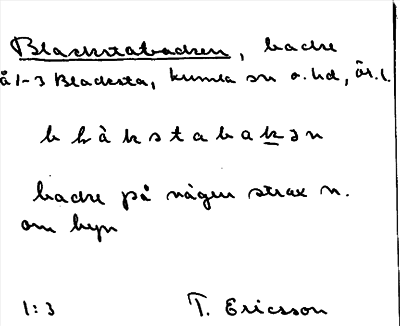 Blackstabacken, backe
å 1-3 Blacksta, Kumla sn o. hd, Ör. l.
b l å k s t a b a k ə n
backe på vägen strax n.
om byn
1:3 T. Ericsson